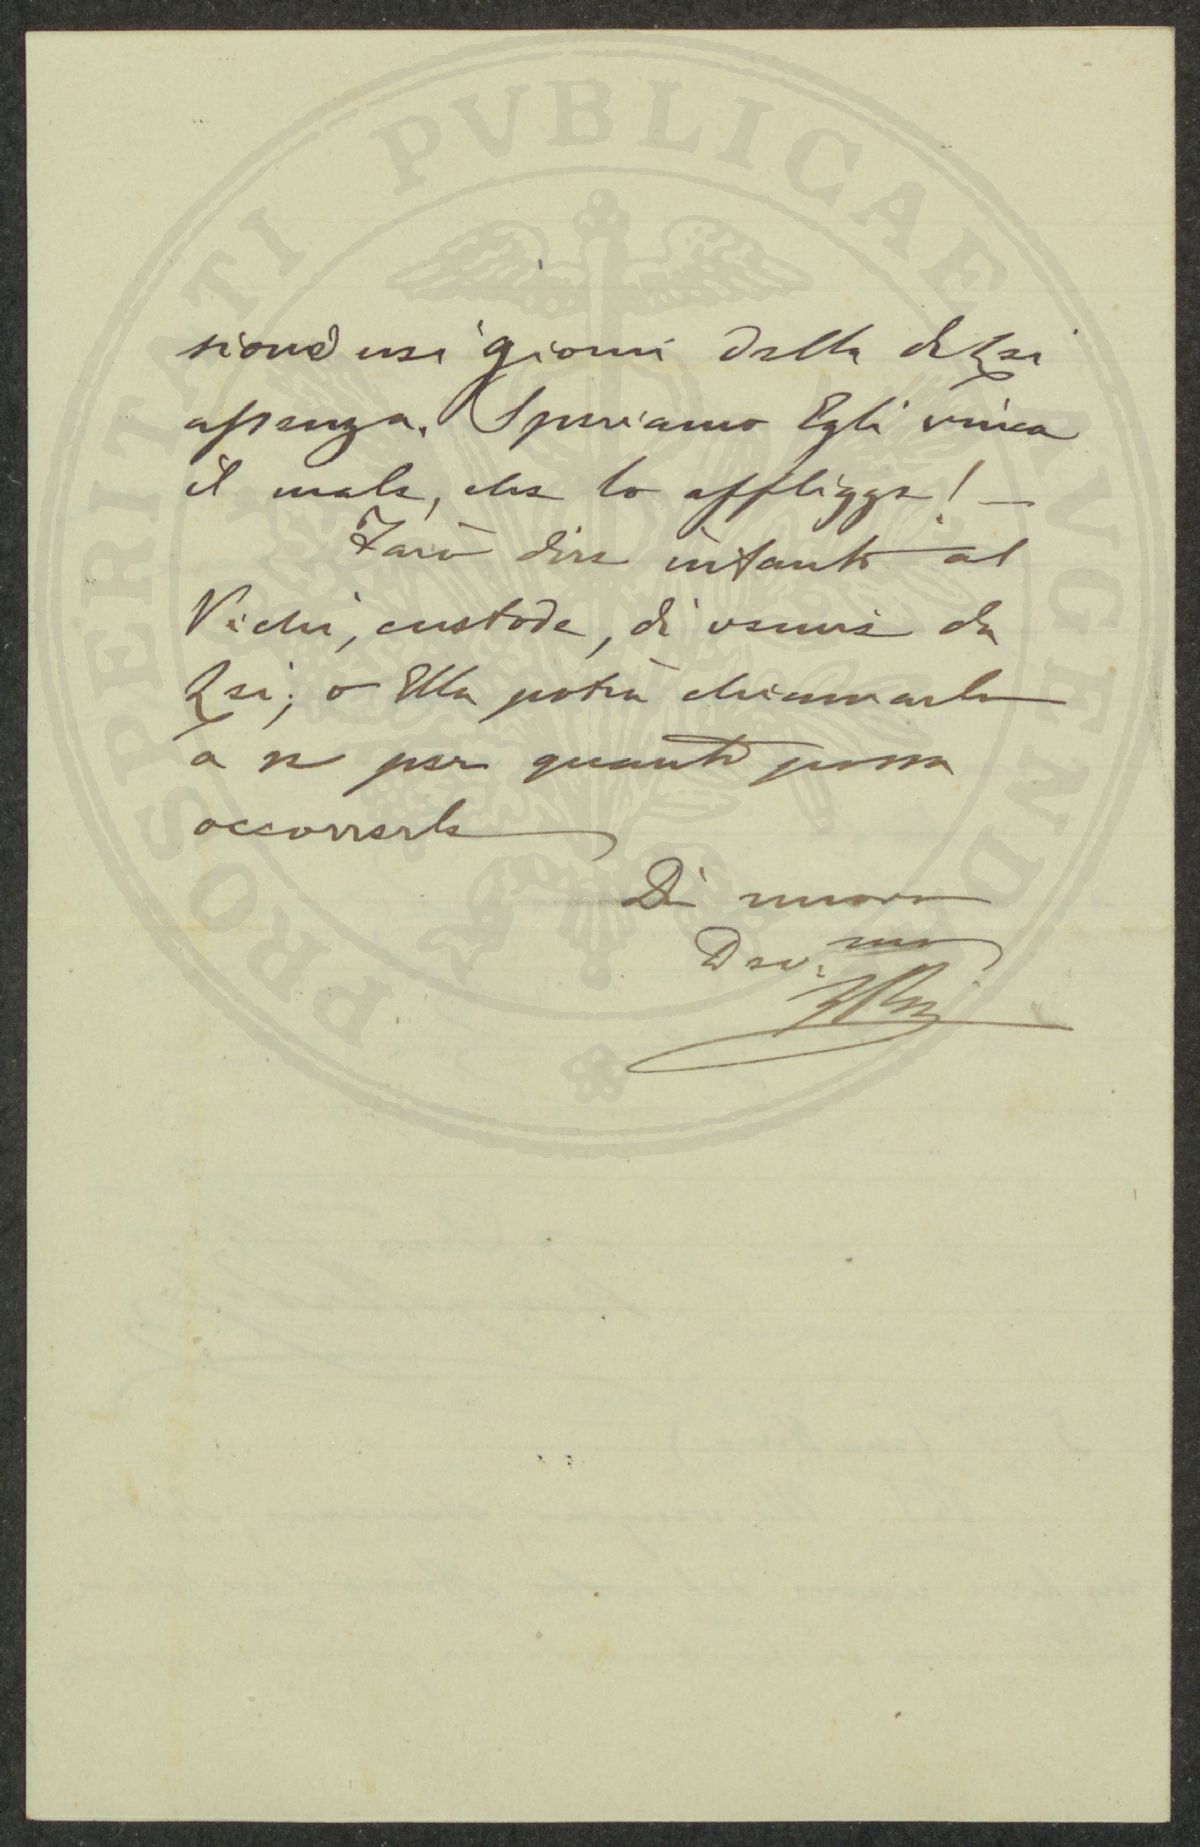 PROSPERITATI PVBLICAE AVGENDAE
sione nei giorni della di Lei
assenza. Speriamo Egli vinca
il male, che lo affligge! —
Farò dire intanto al
Vichi, custode, di venire da
Lei; o Ella potrà chiamarlo
a se per quanto possa
occorrerle
Di nuovo
Dev.mo